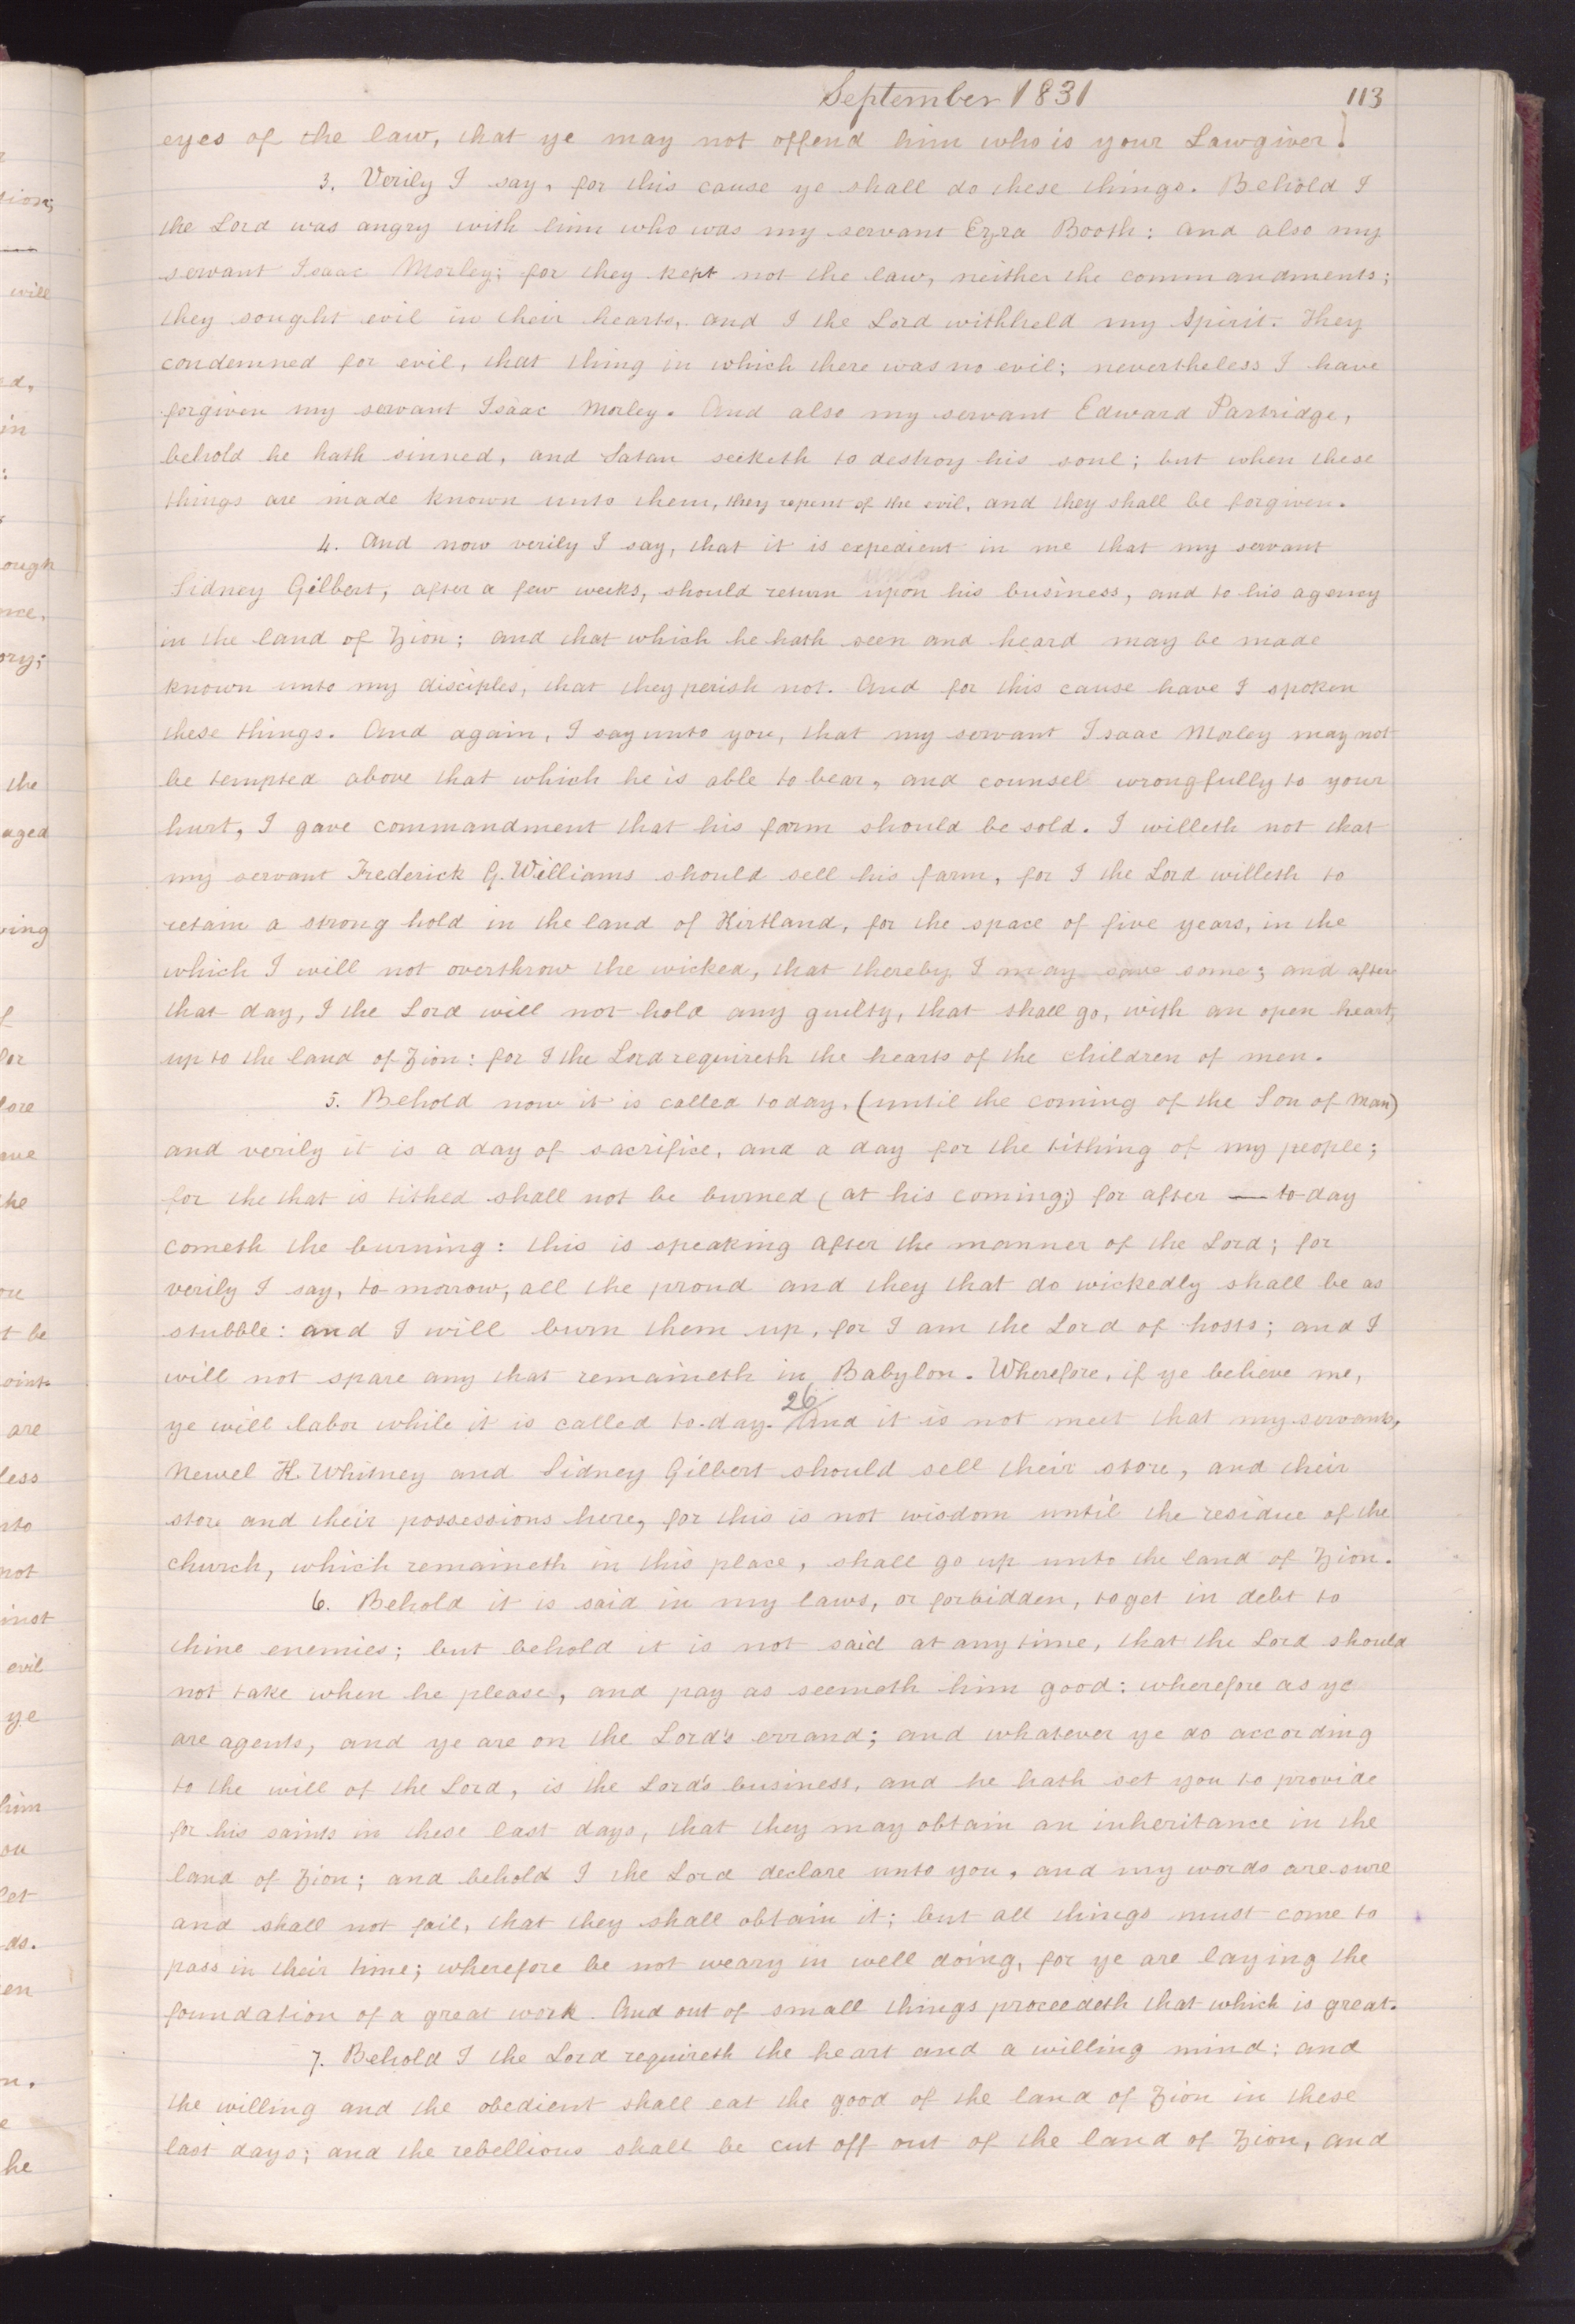 September 1831 113
eyes of the law, that ye may not offend him who is your Lawgiver.]
3. Verily I say, for this cause ye shall do these things. Behold I
the Lord was angry with him who was my servant Ezra Booth: and also my
servant Isaac Morley; for they kept not the law, neither the commandments;
they sought evil in their hearts, and I the Lord withheld my Spirit. They
condemned for evil, that thing in which there was no evil; nevertheless I have
forgiven my servant Isaac Morley. And also my servant Edward Partridge,
behold he hath sinned, and Satan seeketh to destroy his soul; but when these
things are made known unto them, they repent of the evil, and they shall be forgiven.
4. And now verily I say, that it is expedient in me that my servant
unto
Sidney Gilbert, after a few weeks, should return upon his business, and to his agency
in the land of Zion; and that which he hath seen and heard may be made
known unto my disciples, that they perish not. And for this cause have I spoken
these things. And again, I say unto you, that my servant Isaac Morley may not
be tempted above that which he is able to bear, and counsel wrongfully to your
hurt, I gave commandment that his farm should be sold. I willeth not that
my servant Frederick G. Williams should sell his farm, for I the Lord willeth to
retain a strong hold in the land of Kirtland, for the space of five years, in the
which I will not overthrow the wicked, that thereby I may save some; and after
that day, I the Lord will not hold any guilty, that shall go, with an open heart,
up to the land of Zion: for I the Lord requireth the hearts of the children of men.
5. Behold now it is called today, (until the coming of the Son of Man)
and verily it is a day of sacrifice, and a day for the tithing of my people;
for the that is tithed shall not be burned (at his coming;) for after — to-day
cometh the burning: this is speaking after the manner of the Lord; for
verily I say, to-morrow, all the proud and they that do wickedly shall be as
stubble: and I will burn them up, for I am the Lord of hosts; and I
will not spare any that remaineth in Babylon. Wherefore, if ye believe me,
26
ye will labor while it is called to-day. And it is not meet that my servants,
Newel K. Whitney and Sidney Gilbert should sell their store, and their
store and their possessions here, for this is not wisdom until the residue of the
church, which remaineth in this place, shall go up unto the land of Zion.
6. Behold it is said in my laws, or forbidden, to get in debt to
thine enemies; but behold it is not said at any time, that the Lord should
not take when he please, and pay as seemeth him good: wherefore as ye
are agents, and ye are on the Lord's errand; and whatever ye do according
to the will of the Lord, is the Lord's business, and he hath set you to provide
for his saints in these last days, that they may obtain an inheritance in the
land of Zion; and behold I the Lord declare unto you, and my words are sure
and shall not fail, that they shall obtain it; but all things must come to
pass in their time; wherefore be not weary in well doing, for ye are laying the
foundation of a great work. And out of small things proceedeth that which is great.
7. Behold I the Lord requireth the heart and a willing mind; and
the willing and the obedient shall eat the good of the land of Zion in these
last days; and the rebellious shall be cut off out of the land of Zion, and